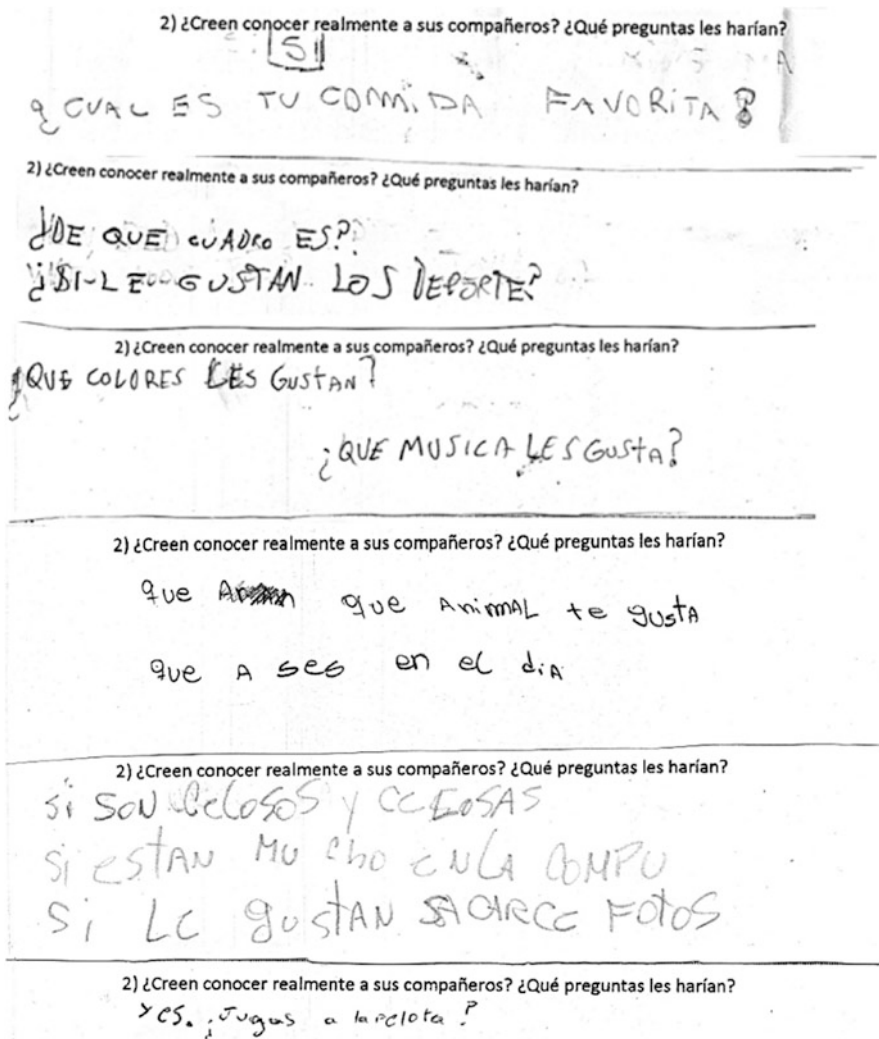 2) ¿Creen conocer realmente a sus compañeros? ¿Qué preguntas les harían?
SI
¿CUAL ES TU COMiDA FAVORiTA?
2) ¿Creen conocer realmente a sus compañeros? ¿Qué preguntas les harían?
¿DE QUE CUADRO ES?
¿SI LE GUSTAN LOS DEPORTE?
2) ¿Creen conocer realmente a sus compañeros? ¿Qué preguntas les harían?
¿QUE COLORES LES GUSTAN?
¿QUE MUSICA LES GUSTA?
2) ¿Creen conocer realmente a sus compañeros? ¿Qué preguntas les harían?
que que AnimAL te gustA
que A ses en el diA
2) ¿Creen conocer realmente a sus compañeros? ¿Qué preguntas les harían?
Si SON CeLOSOS y CELOSAS
Si eSTAN MUcho EN LA COMPU
Si LE gUSTAN SACARCE FOTOS
2) ¿Creen conocer realmente a sus compañeros? ¿Qué preguntas les harían?
Yes. ¿Jugas a la pelota?